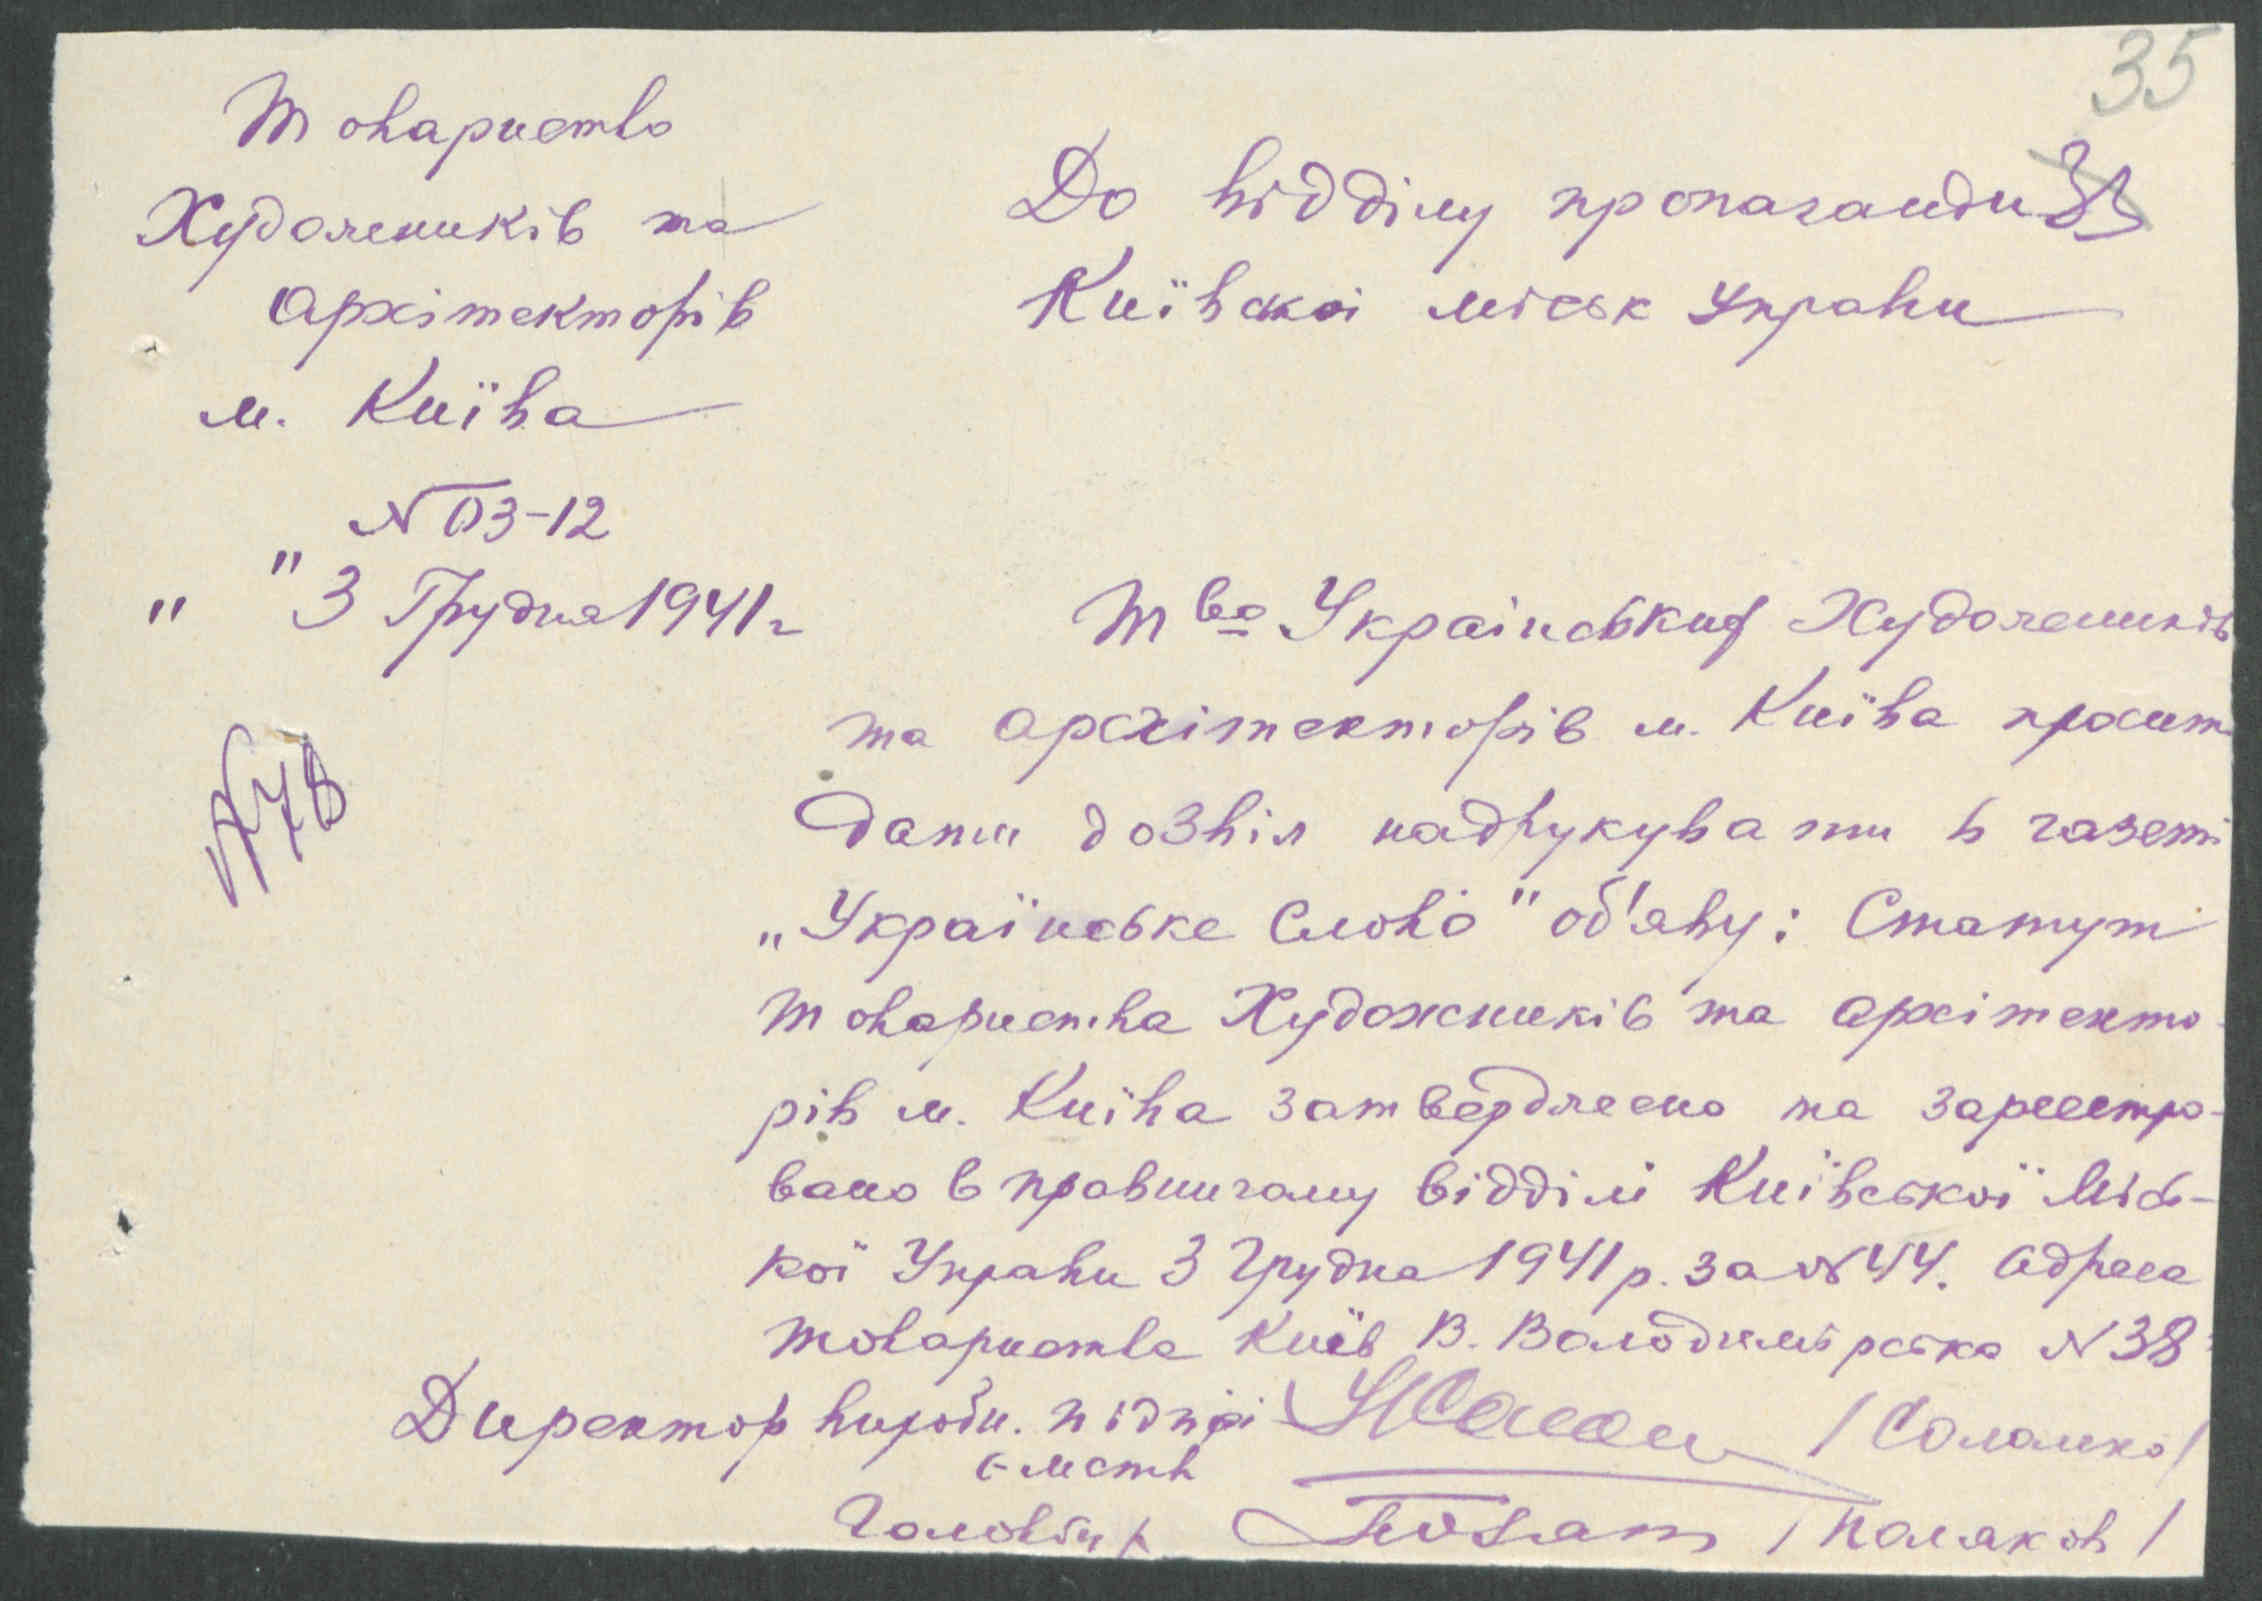 35
33
Товариство
Художників та
Архітекторів
м. Київа
N 03-12
" " 3 Грудня 1941 г
N 76
До відділу пропаганди
Київскої міськ Управи
Т во Українських Художників
та Архітекторів м. Київа просит
Дати дозвіл надрукувати в газеті
„Українське Слово" об'яву: Статут
Товариства Художників та Архітекто-
рів м. Київа затверджено та зареєстро-
вано в правничому відділі Київської Місь-
кої Управи 3 Грудня 1941 р. за N 44. Адреса
Товариства Київ В. Володимірська N 38
Директор виробн. підпрі /Соломко/
є-мств
Головбух /Поляков/